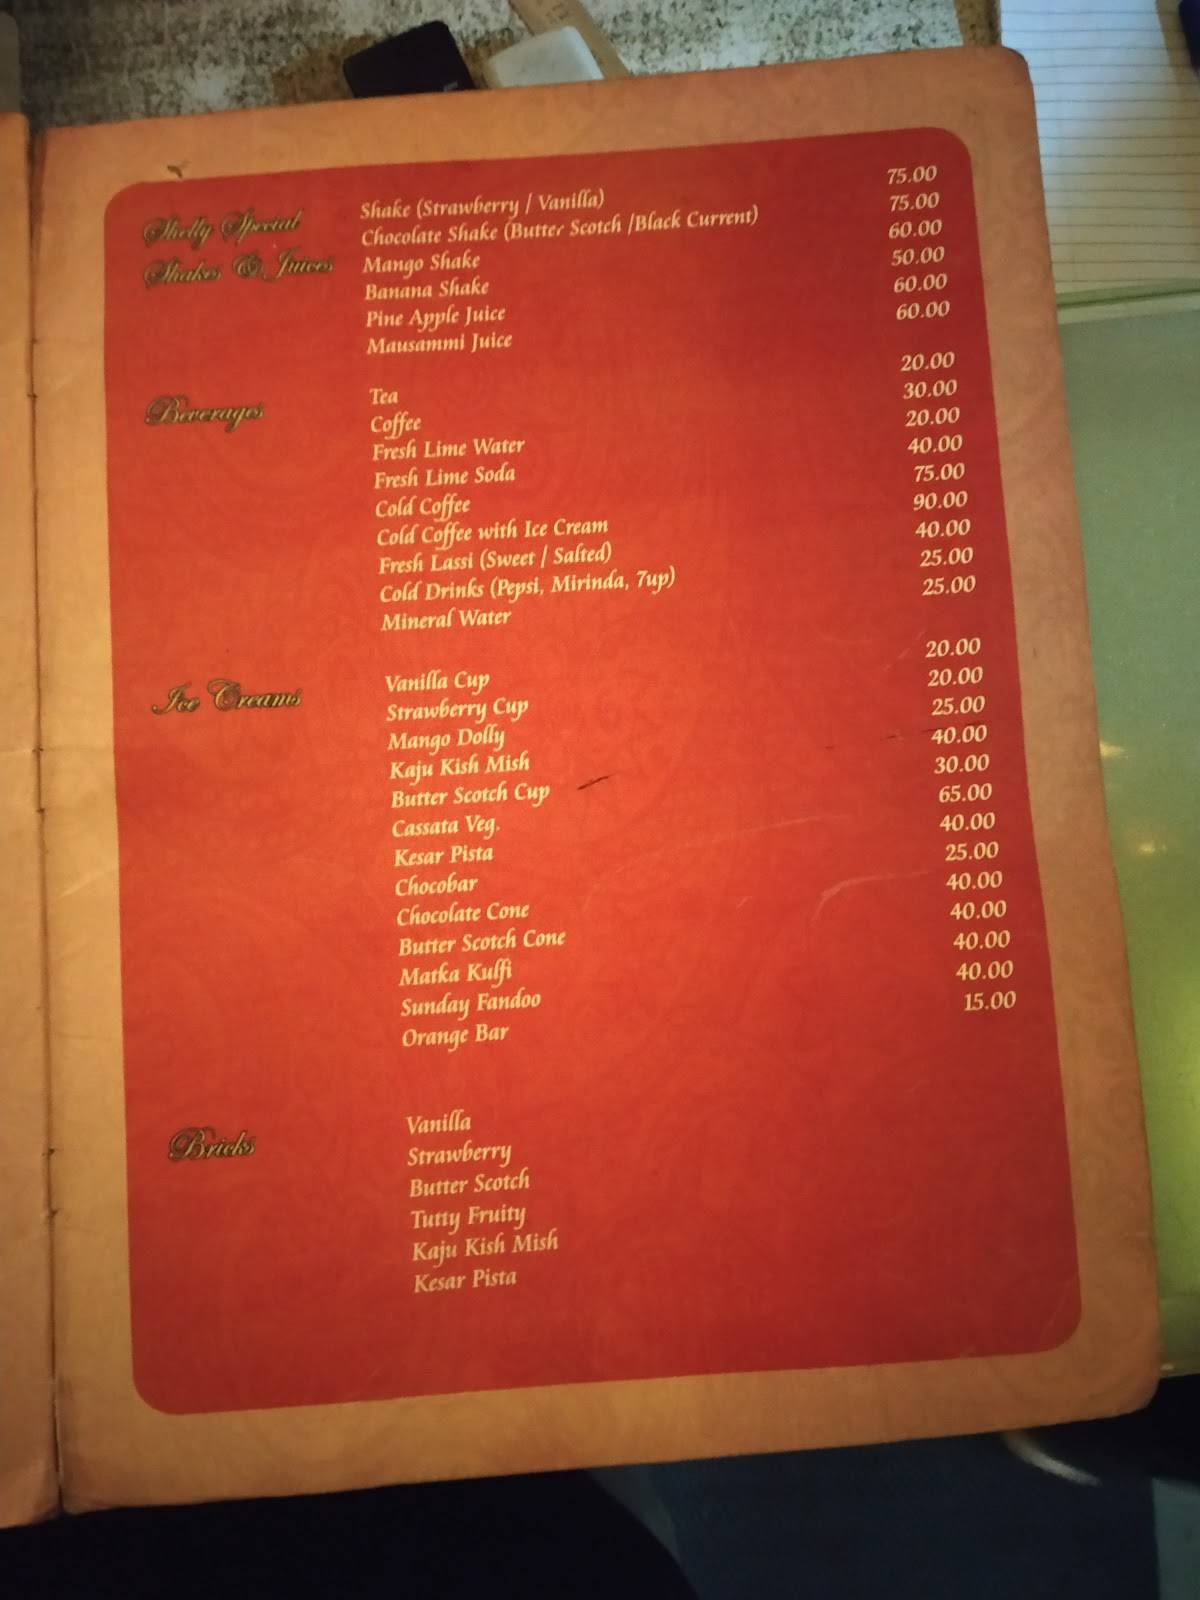 Shelly Special
Shakes & Juices
Shake (Strawberry / Vanilla) 75.00
Chocolate Shake (Butter Scotch /Black Current) 75.00
Mango Shake 60.00
Banana Shake 50.00
Pine Apple Juice 60.00
Mausammi Juice 60.00
Beverages
Tea 20.00
Coffee 30.00
Fresh Lime Water 20.00
Fresh Lime Soda 40.00
Cold Coffee 75.00
Cold Coffee with Ice Cream 90.00
Fresh Lassi (Sweet / Salted) 40.00
Cold Drinks (Pepsi, Mirinda, 7up) 25.00
Mineral Water 25.00
Ice Creams
Vanilla Cup 20.00
Strawberry Cup 20.00
Mango Dolly 25.00
Kaju Kish Mish 40.00
Butter Scotch Cup 30.00
Cassata Veg. 65.00
Kesar Pista 40.00
Chocobar 25.00
Chocolate Cone 40.00
Butter Scotch Cone 40.00
Matka Kulfi 40.00
Sunday Fandoo 40.00
Orange Bar 15.00
Bricks
Vanilla
Strawberry
Butter Scotch
Tutty Fruity
Kaju Kish Mish
Kesar Pista